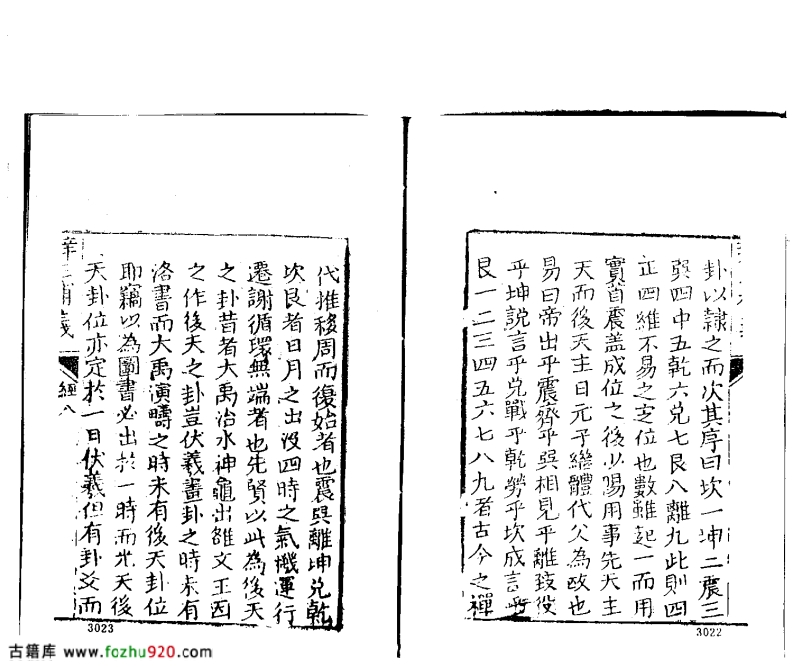 卦以隸之而次其序曰坎一坤二震三
巽四中五乾六兌七艮八離九此則四
正四維不易之定位也數雖起一而用
實首震蓋成位之後少陽用事先天主
天而後天主日元子繼體代父為政也
易曰帝出乎震齊乎巽相見乎離致役
乎坤說言乎兌戰乎乾勞乎坎成言乎
艮一二三四五六七八九者古今之禪
3022
代推移周而復始者也震巽離坤兌乾
坎艮者日月之出没四時之氣機運行
遷謝循環無端者也先賢以此為後天
之卦昔者大禹治水神龜出雒文王因
之作後天之卦豈伏羲畫卦之時未有
洛書而大禹演疇之時未有後天卦位
耶竊以為圖書必出於一時而先天後
天卦位亦定於一日伏羲但有卦爻而
經八
3023
古籍库 www.fozhu920.com